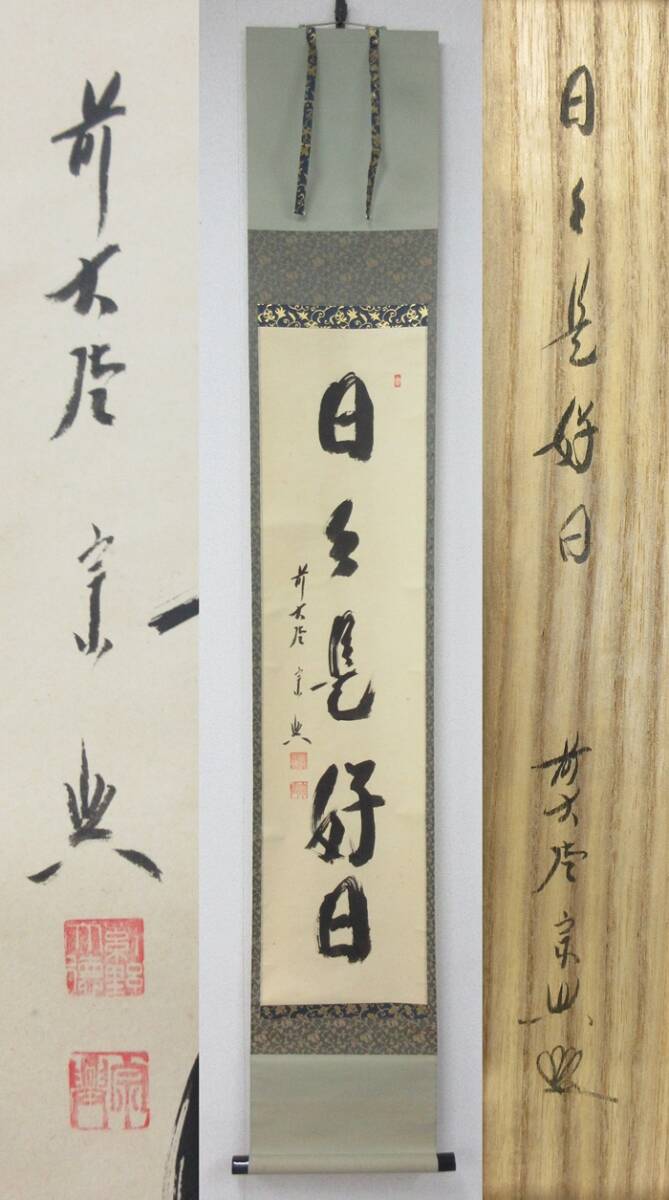 前大徳 宗典
日々是好日
前大徳 宗典
日々是好日
前大徳 宗典